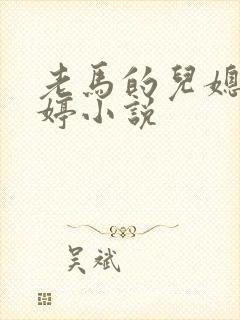 老馬的兒媳
婷小說
吳斌